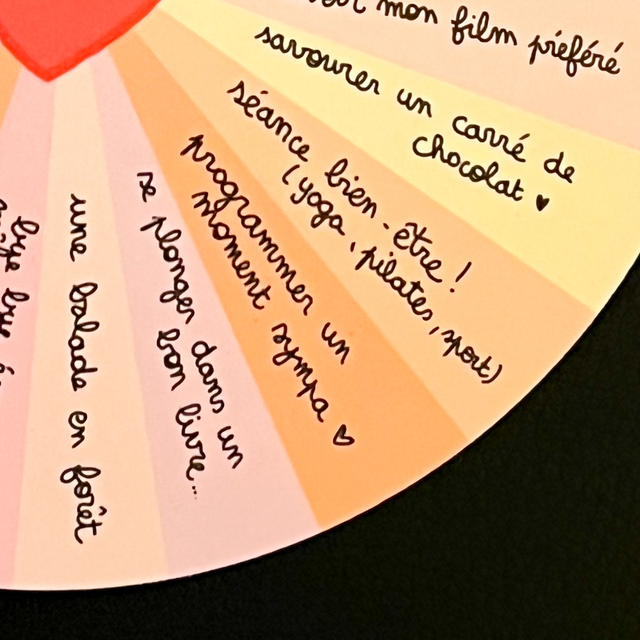 mon film préféré
savourer un carré de
chocolat ♥
séance bien-être !
(yoga, pilates, sport)
programmer un
moment sympa ♡
se plonger dans un
bon livre...
une balade en forêt